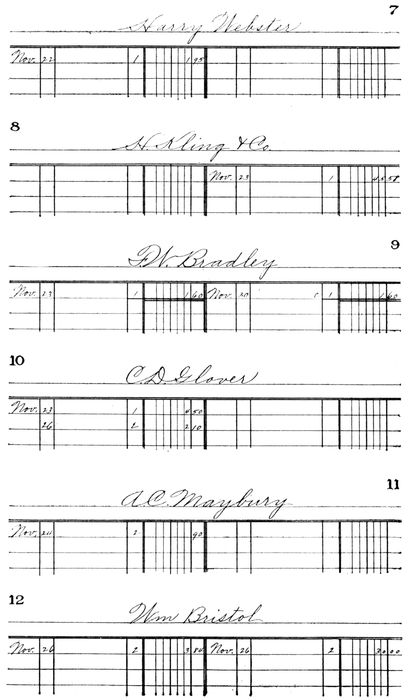 7
Harry Webster
Nov. 22 1 1 95
8
H. Kling & Co.
Nov. 23 1
9
F.W. Bradley
Nov. 23 1 1 60 Nov. 30 C 1 1 60
10
C.D. Glover
Nov. 23 1 4 50
26 2 2 10
11
A.C. Maybury
Nov. 24 2 90
12
Wm Bristol
Nov. 26 2 3 84 Nov. 26 2 00